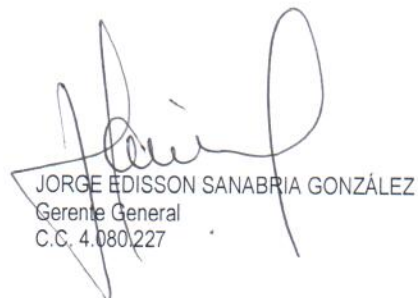 JORGE EDISSON SANABRIA GONZÁLEZ
Gerente General
C.C. 4.080.227